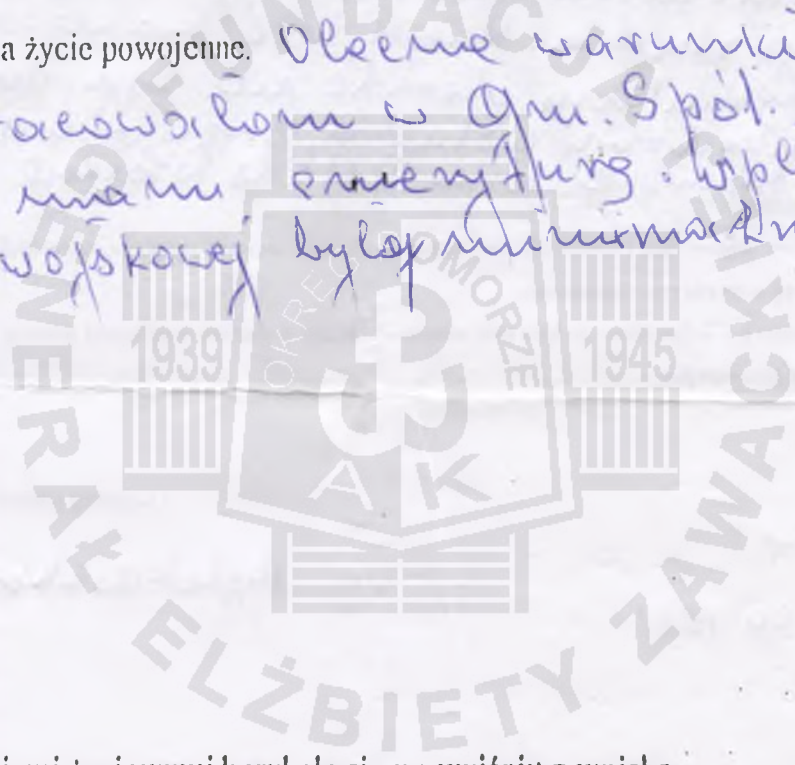 a życie powojenne. Obecne warunki
racowałam w Gm. Spół.
mam emeryturę. Wpł
wojskowej było minimaln
FUNDACJA GENERAŁ ELŻBIETY ZAWACKIEJ
OKRĘG POMORZE
1939 1945
AK